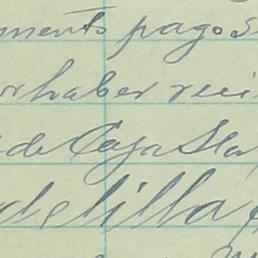 mento pagos
rhaber reci
de Caja Sla
delilla